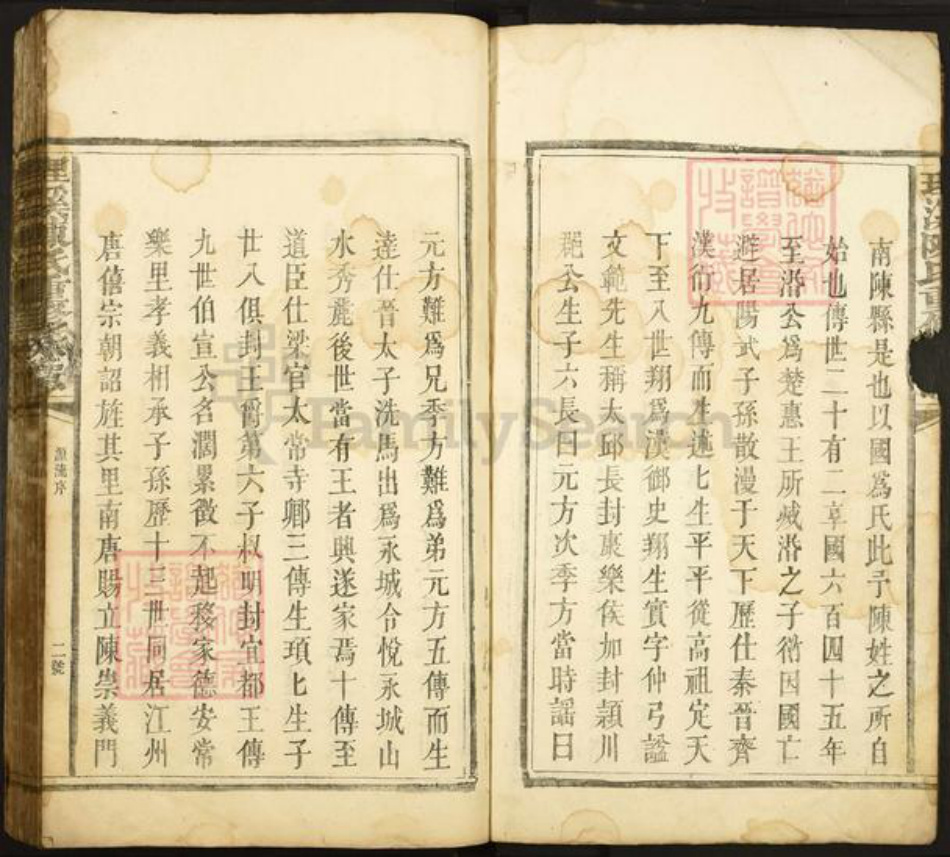 南陳縣是也以國爲氏此予陳姓之所自
始也傳世二十有二享國六百四十五年
至滑公爲楚惠王所滅滑之子衜因國亡
避居陽武子孫散漫于天下歷仕秦晉齊
漢衍九傳而生遠七生平平從高祖定天
下至八世翔爲漢御史翔生實字仲弓諡
文範先生稱太邱長封康樂侯加封潁川
郡公生子六長曰元方次季方當時謡曰
元方難爲兄季方難爲弟元方五傳而生
逵仕晉太子洗馬出爲永城令悅永城山
水秀麗後世當有王者興遂家焉十傳至
道臣仕梁官太常寺卿三傳生頊七生子
廿八俱封王霄第六子叔明封宜都王傳
九世伯宣公名濶累徵不起移家德安常
樂里孝義相承子孫歷十三世同居江州
唐僖宗朝詔旌其里南唐賜立陳崇義門
源流序
二號
FamilySearch